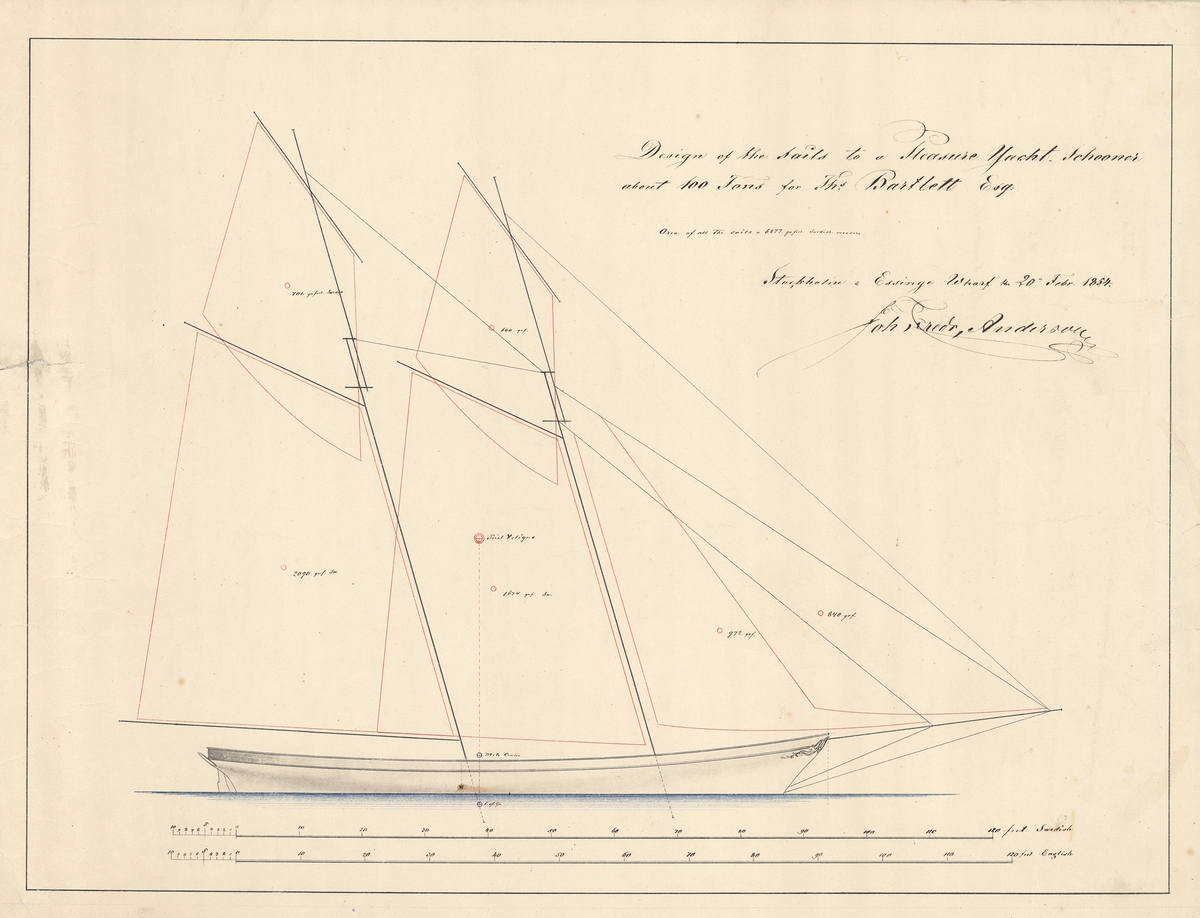 Design of the Sails to a Pleasure Yacht. Schooner
about 100 Tons for Ths Bartlett Esq.
Area of all the sails = 6877 sq. feet. Swedish measure
Stockholm & Essinge Wharf the 20th Febr. 1854.
Joh Fredr. Anderson
701 sq. feet Swedish
600 sq.f.
Point Velique
2090 sq.f. Sw.
1674 sq.f. Sw.
972 sq.f.
840 sq.f.
10 9 8 7 6 5 4 3 2 1 0 10 20 30 40 50 60 70 80 90 100 110 120 feet Swedish
10 9 8 7 6 5 4 3 2 1 0 10 20 30 40 50 60 70 80 90 100 110 120 feet English